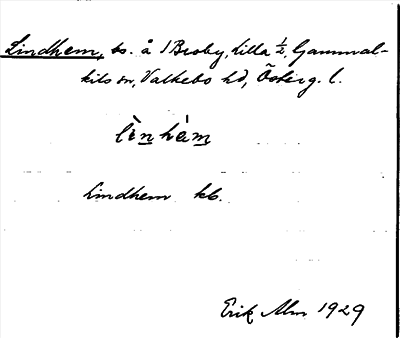 Lindhem, ts. å 1 Broby, Lilla ½, Gammal-
kils sn, Valkebo hd, Österg. l.
lìnhèm
Lindhem kb.
Erik Alm 1929